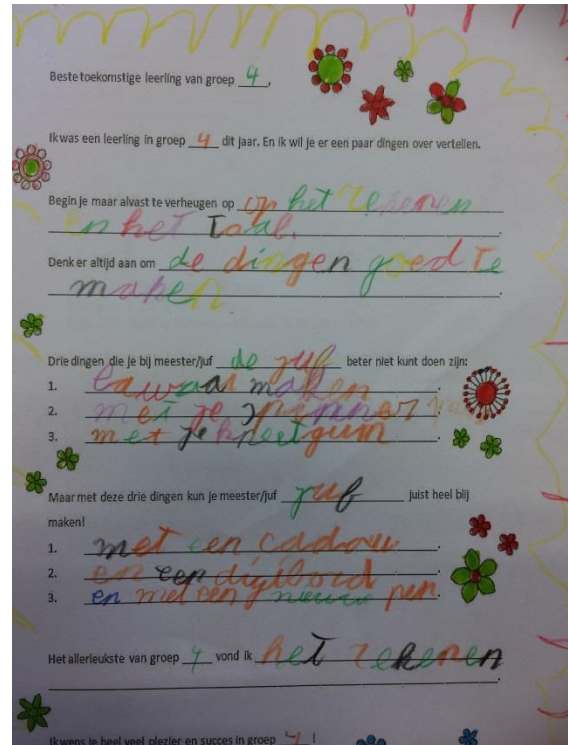 Beste toekomstige leerling van groep 4,
Ik was een leerling in groep 4 dit jaar. En ik wil je er een paar dingen over vertellen.
Begin je maar alvast te verheugen op op het rekenen
en het Taal.
Denk er altijd aan om de dingen goed te
maken.
Drie dingen die je bij meester/juf de juf beter niet kunt doen zijn:
1. lawaai maken.
2. met je spinner
3. met je kneetgum.
Maar met deze drie dingen kun je meester/juf juf juist heel blij
maken!
1. met een cadow.
2. en een digibord.
3. en met een nieuwe pen.
Het allerleukste van groep 4 vond ik het rekenen
Ik wens je heel veel plezier en succes in groep 4!